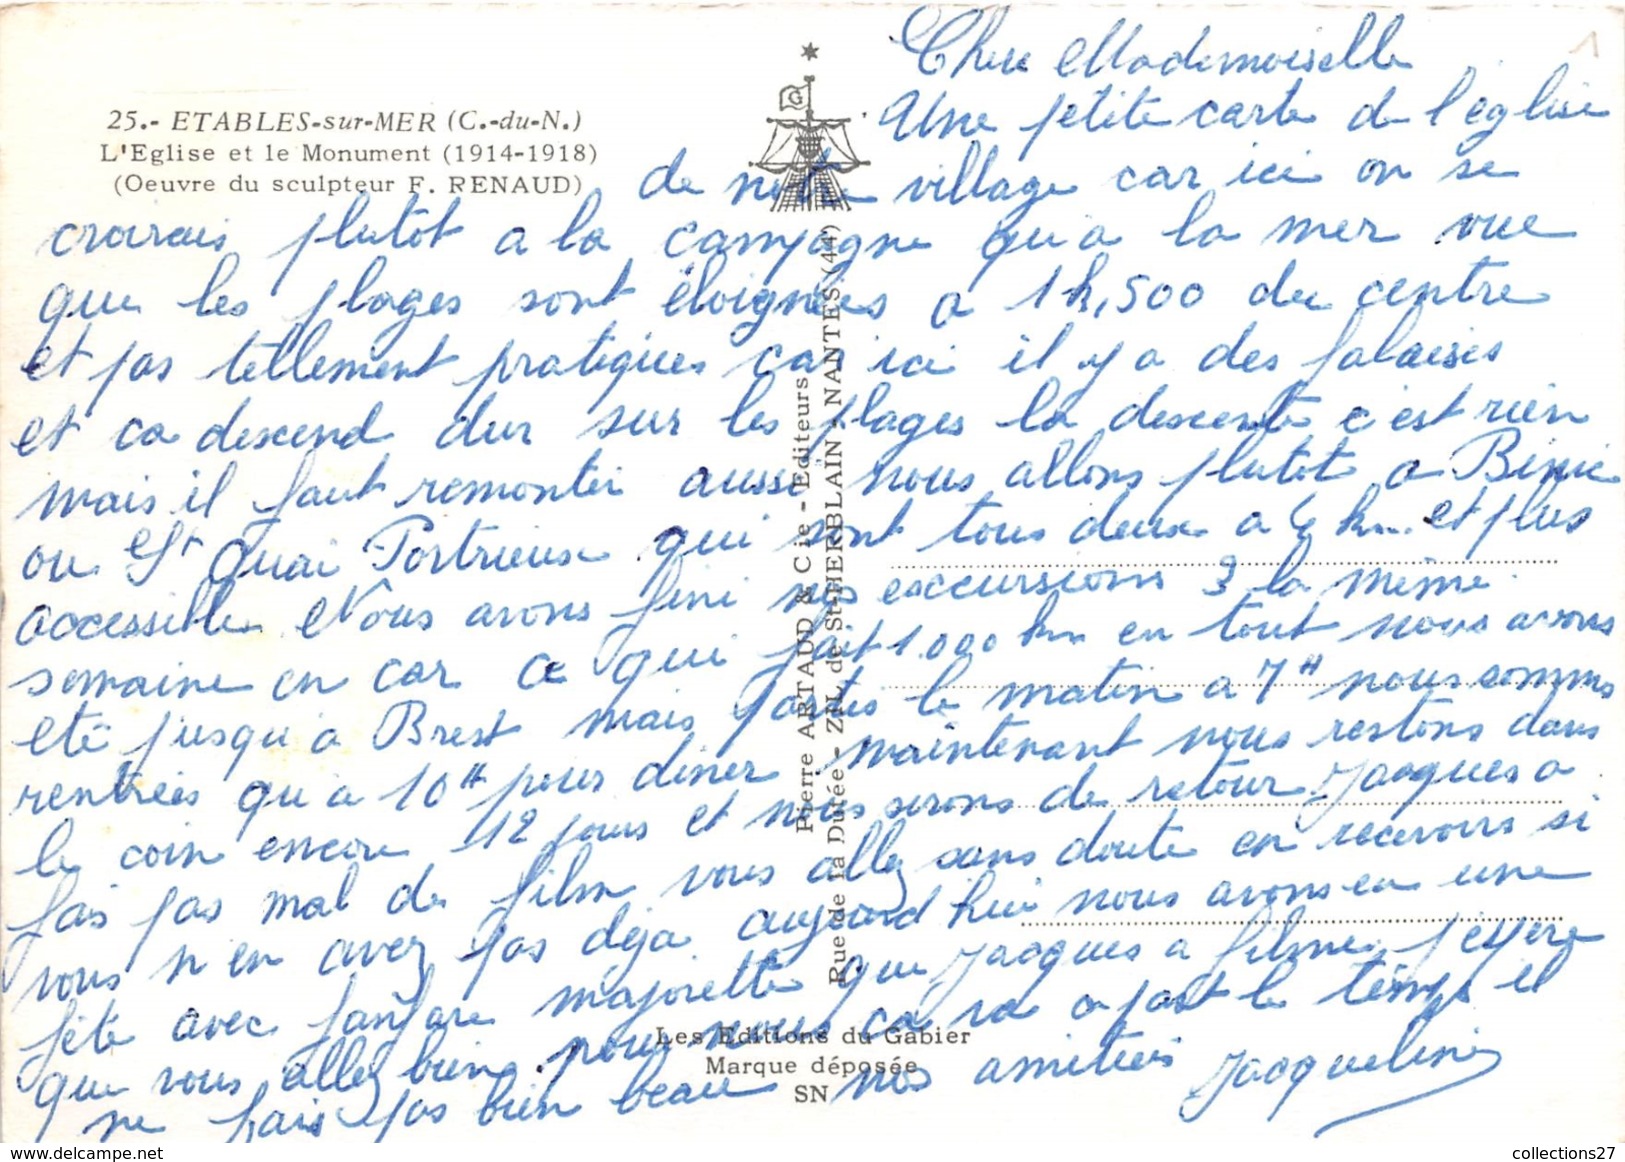 25.- ETABLES-sur-MER (C.-du-N.)
L'Eglise et le Monument (1914-1918)
(Oeuvre du sculpteur F. RENAUD)
G
Pierre ARTAUD & Cie - Editeurs
Rue de la Dutée - Z.I.L de St-HERBLAIN - NANTES (44)
Les Editions du Gabier
Marque déposée
SN
1
Chere Mademoiselle
Une petite carte de l'eglise
de notre village car ici on se
croirais plutôt a la campagne qu'a la mer vue
que les plages sont éloignées a 1k,500 du centre
et pas tellement pratiques car ici il y a des falaises
et ca descend dur sur les plages la descente c'est rien
mais il faut remonter aussi nous allons plutot a Binic
ou St Quai Portrieux qui sont tous deux a 6 km et plus
accessible Nous avons fini nos excursions 3 la même
semaine en car ce qui fait 1.000 km en tout nous avons
eté jusqu'a Brest mais partis le matin a 7H nous sommes
rentrées qu'a 10H pour diner maintenant nous restons dans
le coin encore 12 jours et nous serons de retour Jacques a
fais pas mal de film vous allez sans doute en recevoirs si
vous n'en avez pas déja aujourd'hui nous avons eu une
fête avec fanfare majorette que Jacques a filme J'espere
que vous allez bien pour nous ca va a part le temps il
ne fais pas bien beau nos amitiés Jacqueline
collections27